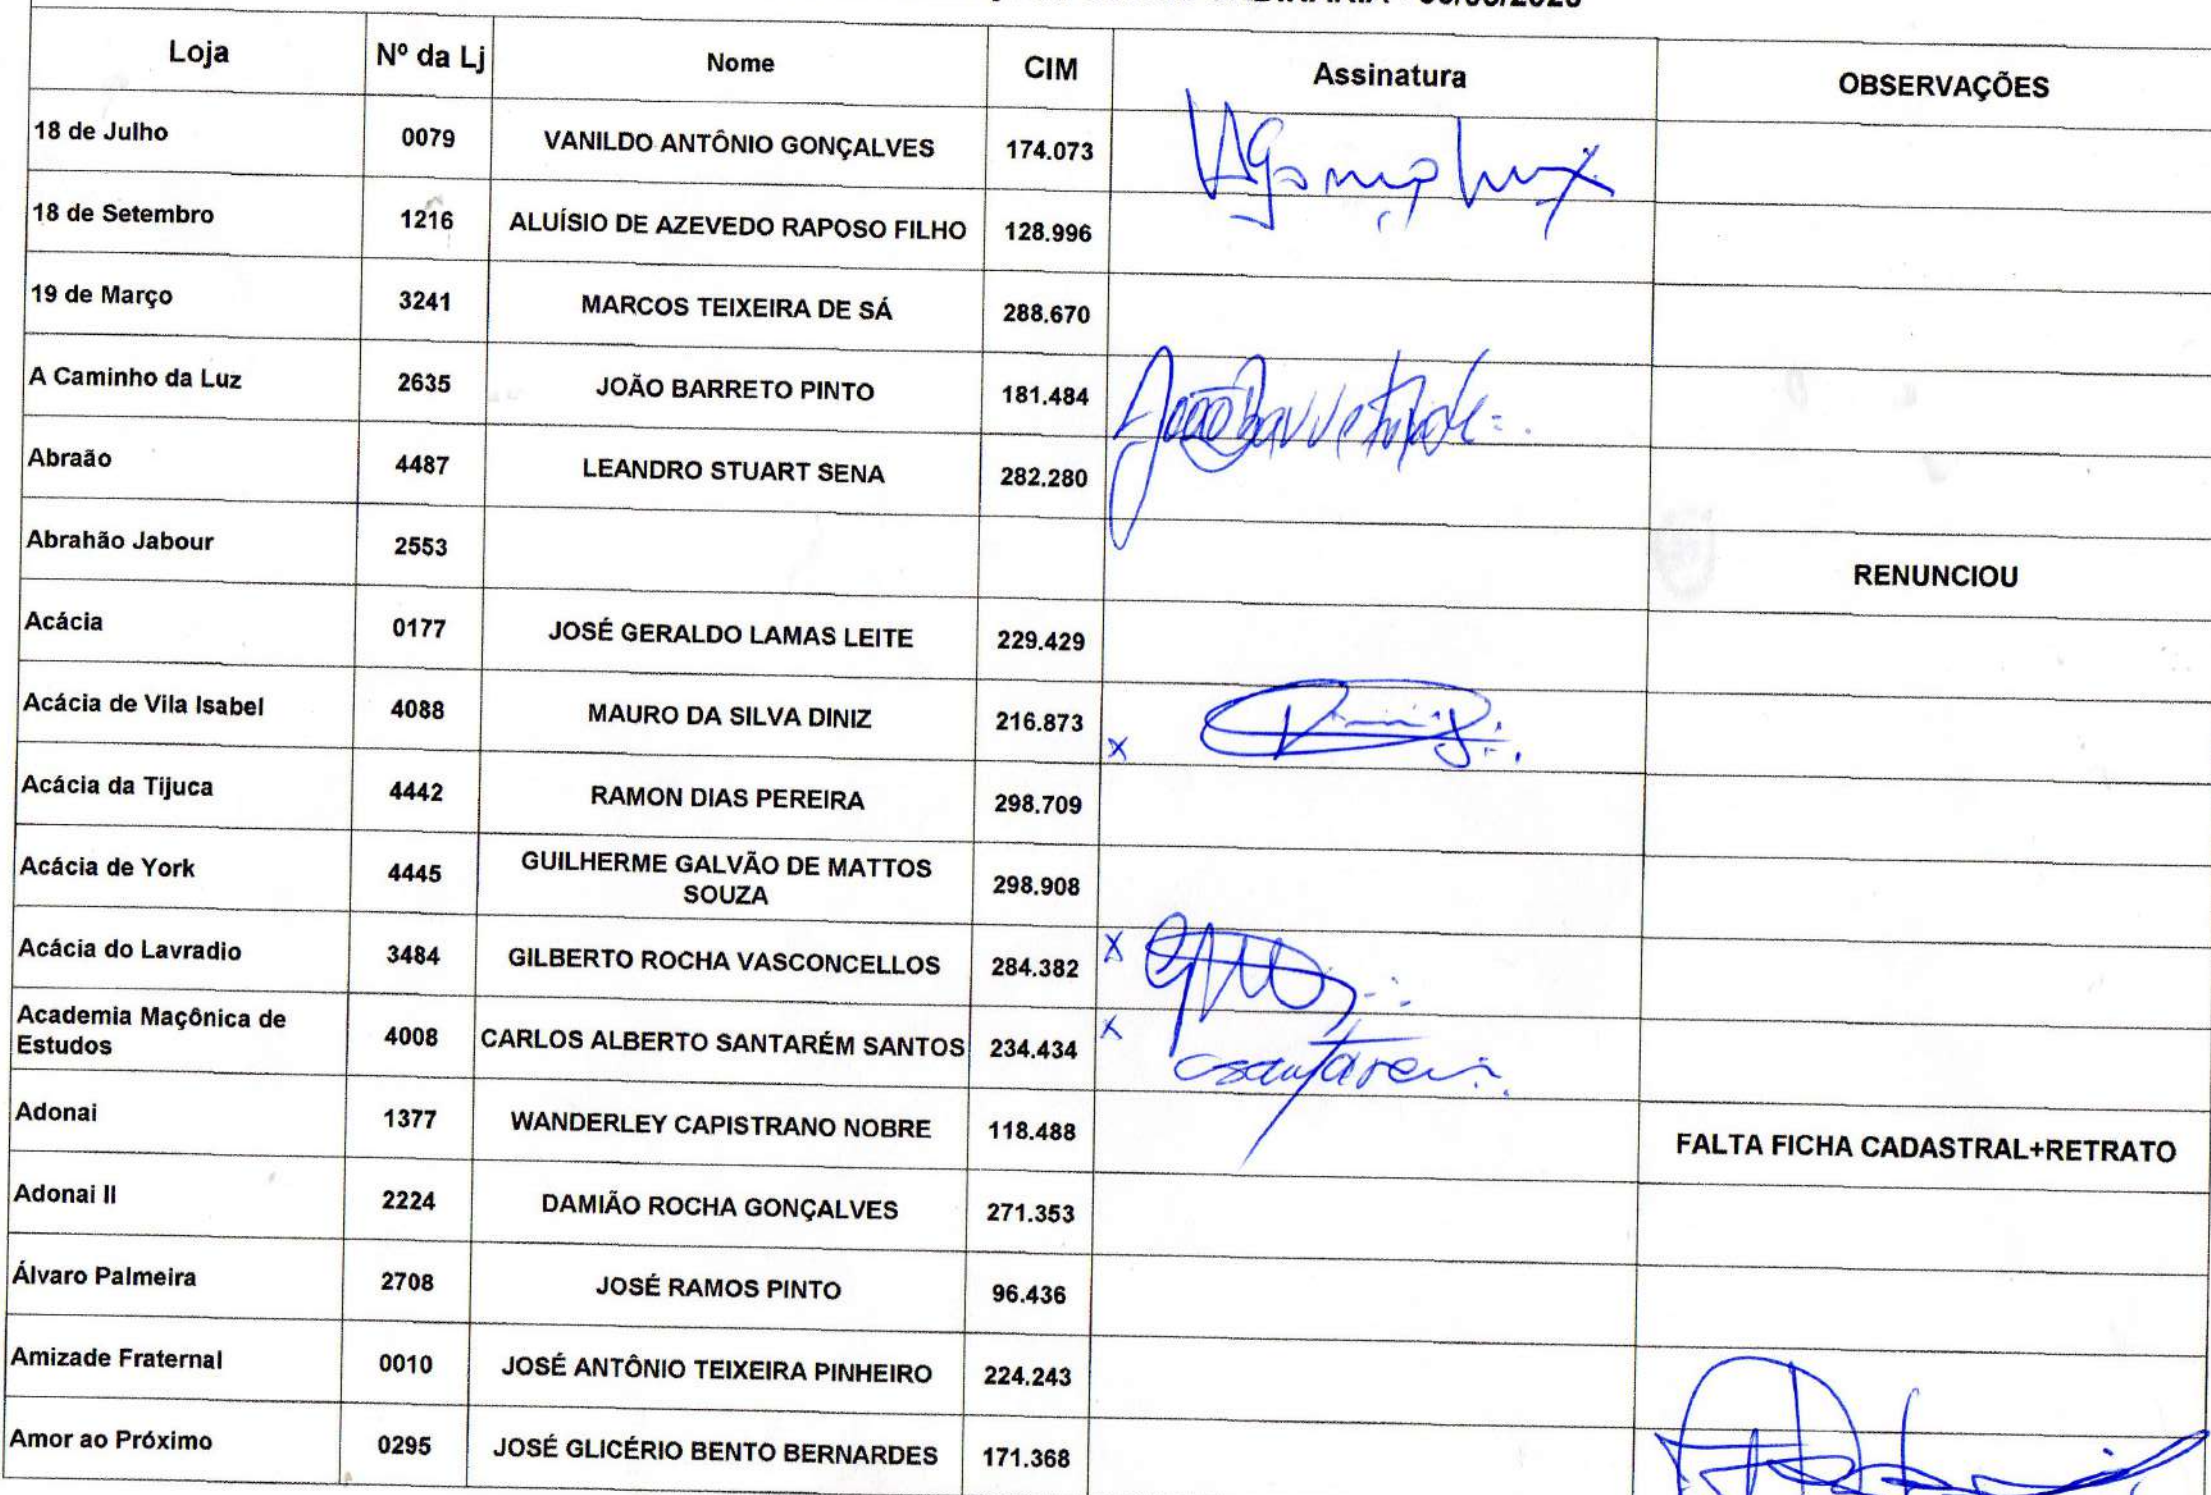 Loja Nº da Lj Nome CIM Assinatura OBSERVAÇÕES
18 de Julho 0079 VANILDO ANTÔNIO GONÇALVES 174.073
18 de Setembro 1216 ALUÍSIO DE AZEVEDO RAPOSO FILHO 128.996
19 de Março 3241 MARCOS TEIXEIRA DE SÁ 288.670
A Caminho da Luz 2635 JOÃO BARRETO PINTO 181.484
Abraão 4487 LEANDRO STUART SENA 282.280
Abrahão Jabour 2553 RENUNCIOU
Acácia 0177 JOSÉ GERALDO LAMAS LEITE 229.429
Acácia de Vila Isabel 4088 MAURO DA SILVA DINIZ 216.873 x
Acácia da Tijuca 4442 RAMON DIAS PEREIRA 298.709
Acácia de York 4445 GUILHERME GALVÃO DE MATTOS
SOUZA 298.908
Acácia do Lavradio 3484 GILBERTO ROCHA VASCONCELLOS 284.382 x
Academia Maçônica de
Estudos 4008 CARLOS ALBERTO SANTARÉM SANTOS 234.434 x
Adonai 1377 WANDERLEY CAPISTRANO NOBRE 118.488 FALTA FICHA CADASTRAL+RETRATO
Adonai II 2224 DAMIÃO ROCHA GONÇALVES 271.353
Álvaro Palmeira 2708 JOSÉ RAMOS PINTO 96.436
Amizade Fraternal 0010 JOSÉ ANTÔNIO TEIXEIRA PINHEIRO 224.243
Amor ao Próximo 0295 JOSÉ GLICÉRIO BENTO BERNARDES 171.368